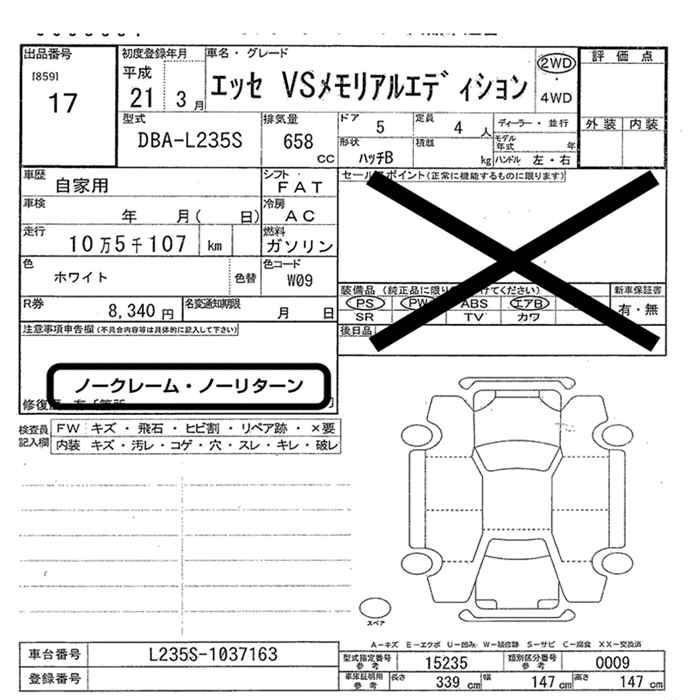 出品番号
[859]
17
初度登録年月
平成
21 3月
車名・グレード
エッセ VSメモリアルエディション
2WD
・
4WD
評価点
外装 内装
型式
DBA-L235S
排気量
658
CC
ドア
5
定員
4人
ディーラー・並行
モデル年式 年
形状
ハッチB
積載
kg
ハンドル 左・右
車歴
自家用
シフト
FAT
セールスポイント(正常に機能するものに限ります)
車検
年 月( 日)
冷房
AC
走行
10万5千107 km
燃料
ガソリン
色
ホワイト
色替
色コード
W09
装備品(純正品に限り けてください)
PS PW ABS エアB
SR TV カワ
新車保証書
有・無
R券
8,340円
名変通知期限
月 日
後日品
注意事項申告欄(不具合内容等は具体的に記入して下さい)
ノークレーム・ノーリターン
検査員記入欄
FW キズ・飛石・ヒビ割・リペア跡・×要
内装 キズ・汚レ・コゲ・穴・スレ・キレ・破レ
スペア
A-キズ E-エクボ U-凹み W-補修跡 S-サビ C-腐食 XX-交換済
車台番号
L235S-1037163
登録番号
型式指定番号参考
15235
類別区分番号参考
0009
車庫証明用参考
長さ
339 cm
幅
147 cm
高さ
147 cm